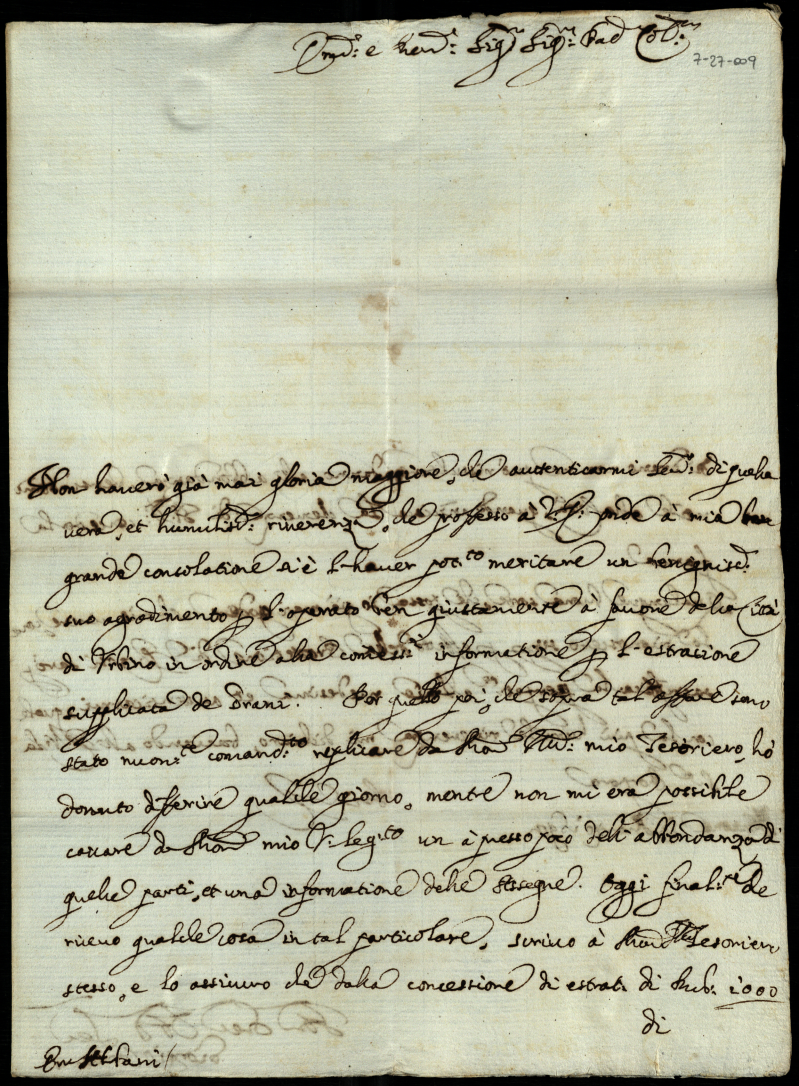 e Rev.mo Sig.r Sig.r Pad.n Col.mo
7-27-009
Non haverò già mai gloria maggiore, che autenticarmi Ser.e di quella
vera, et humiliss.a riverenza, che professo à V.S. onde à mia
grande consolatione si è l'haver pot.to meritare un benigniss.o
suo agradimento p l'operato ben giustamente à favore della Città
di Urbino in ordine alla informatione p l'estracione
supplicata de Grani. Per quello poi, che sopra tal'affare sono
stato nuovam.te comand.to replicare da Mons.r Ill.mo mio Tesoriero, hò
dovuto differire qualche giorno, mentre non mi era possibile
cavare da Mons.r mio V. legato un à presso poco dell'abbondanza di
quelle parti, et una informatione delle Assegne. Oggi final.te che
ricevo qualche cosa in tal particolare, scrivo à Mons.r Tesoriero
stesso, e lo assicuro che dalla concessione di estrat. di Rub. 2000
di